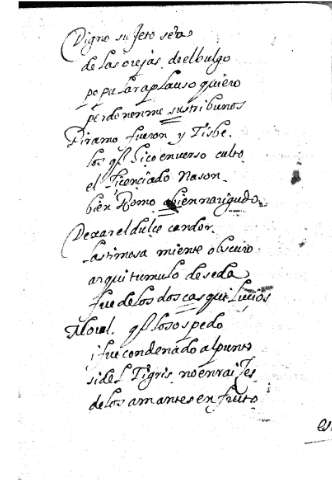 Digno sujeto sera
de las orejas del bulgo
popular aplauso quiero
perdonenme sus tribunos
Piramo fueron y Tisbe
los q̃ hico en verso culto
el licenciado Nason
bien Romo o bien narigudo
Dexar el dulce candor
lastimosa miente obscuro
a que tumulo de seda
fue de los dos casquilucios
Moral q̃ los ospedo
i fue condenado al punto
si del Tigris no en raizes
de los amantes en fruto
es